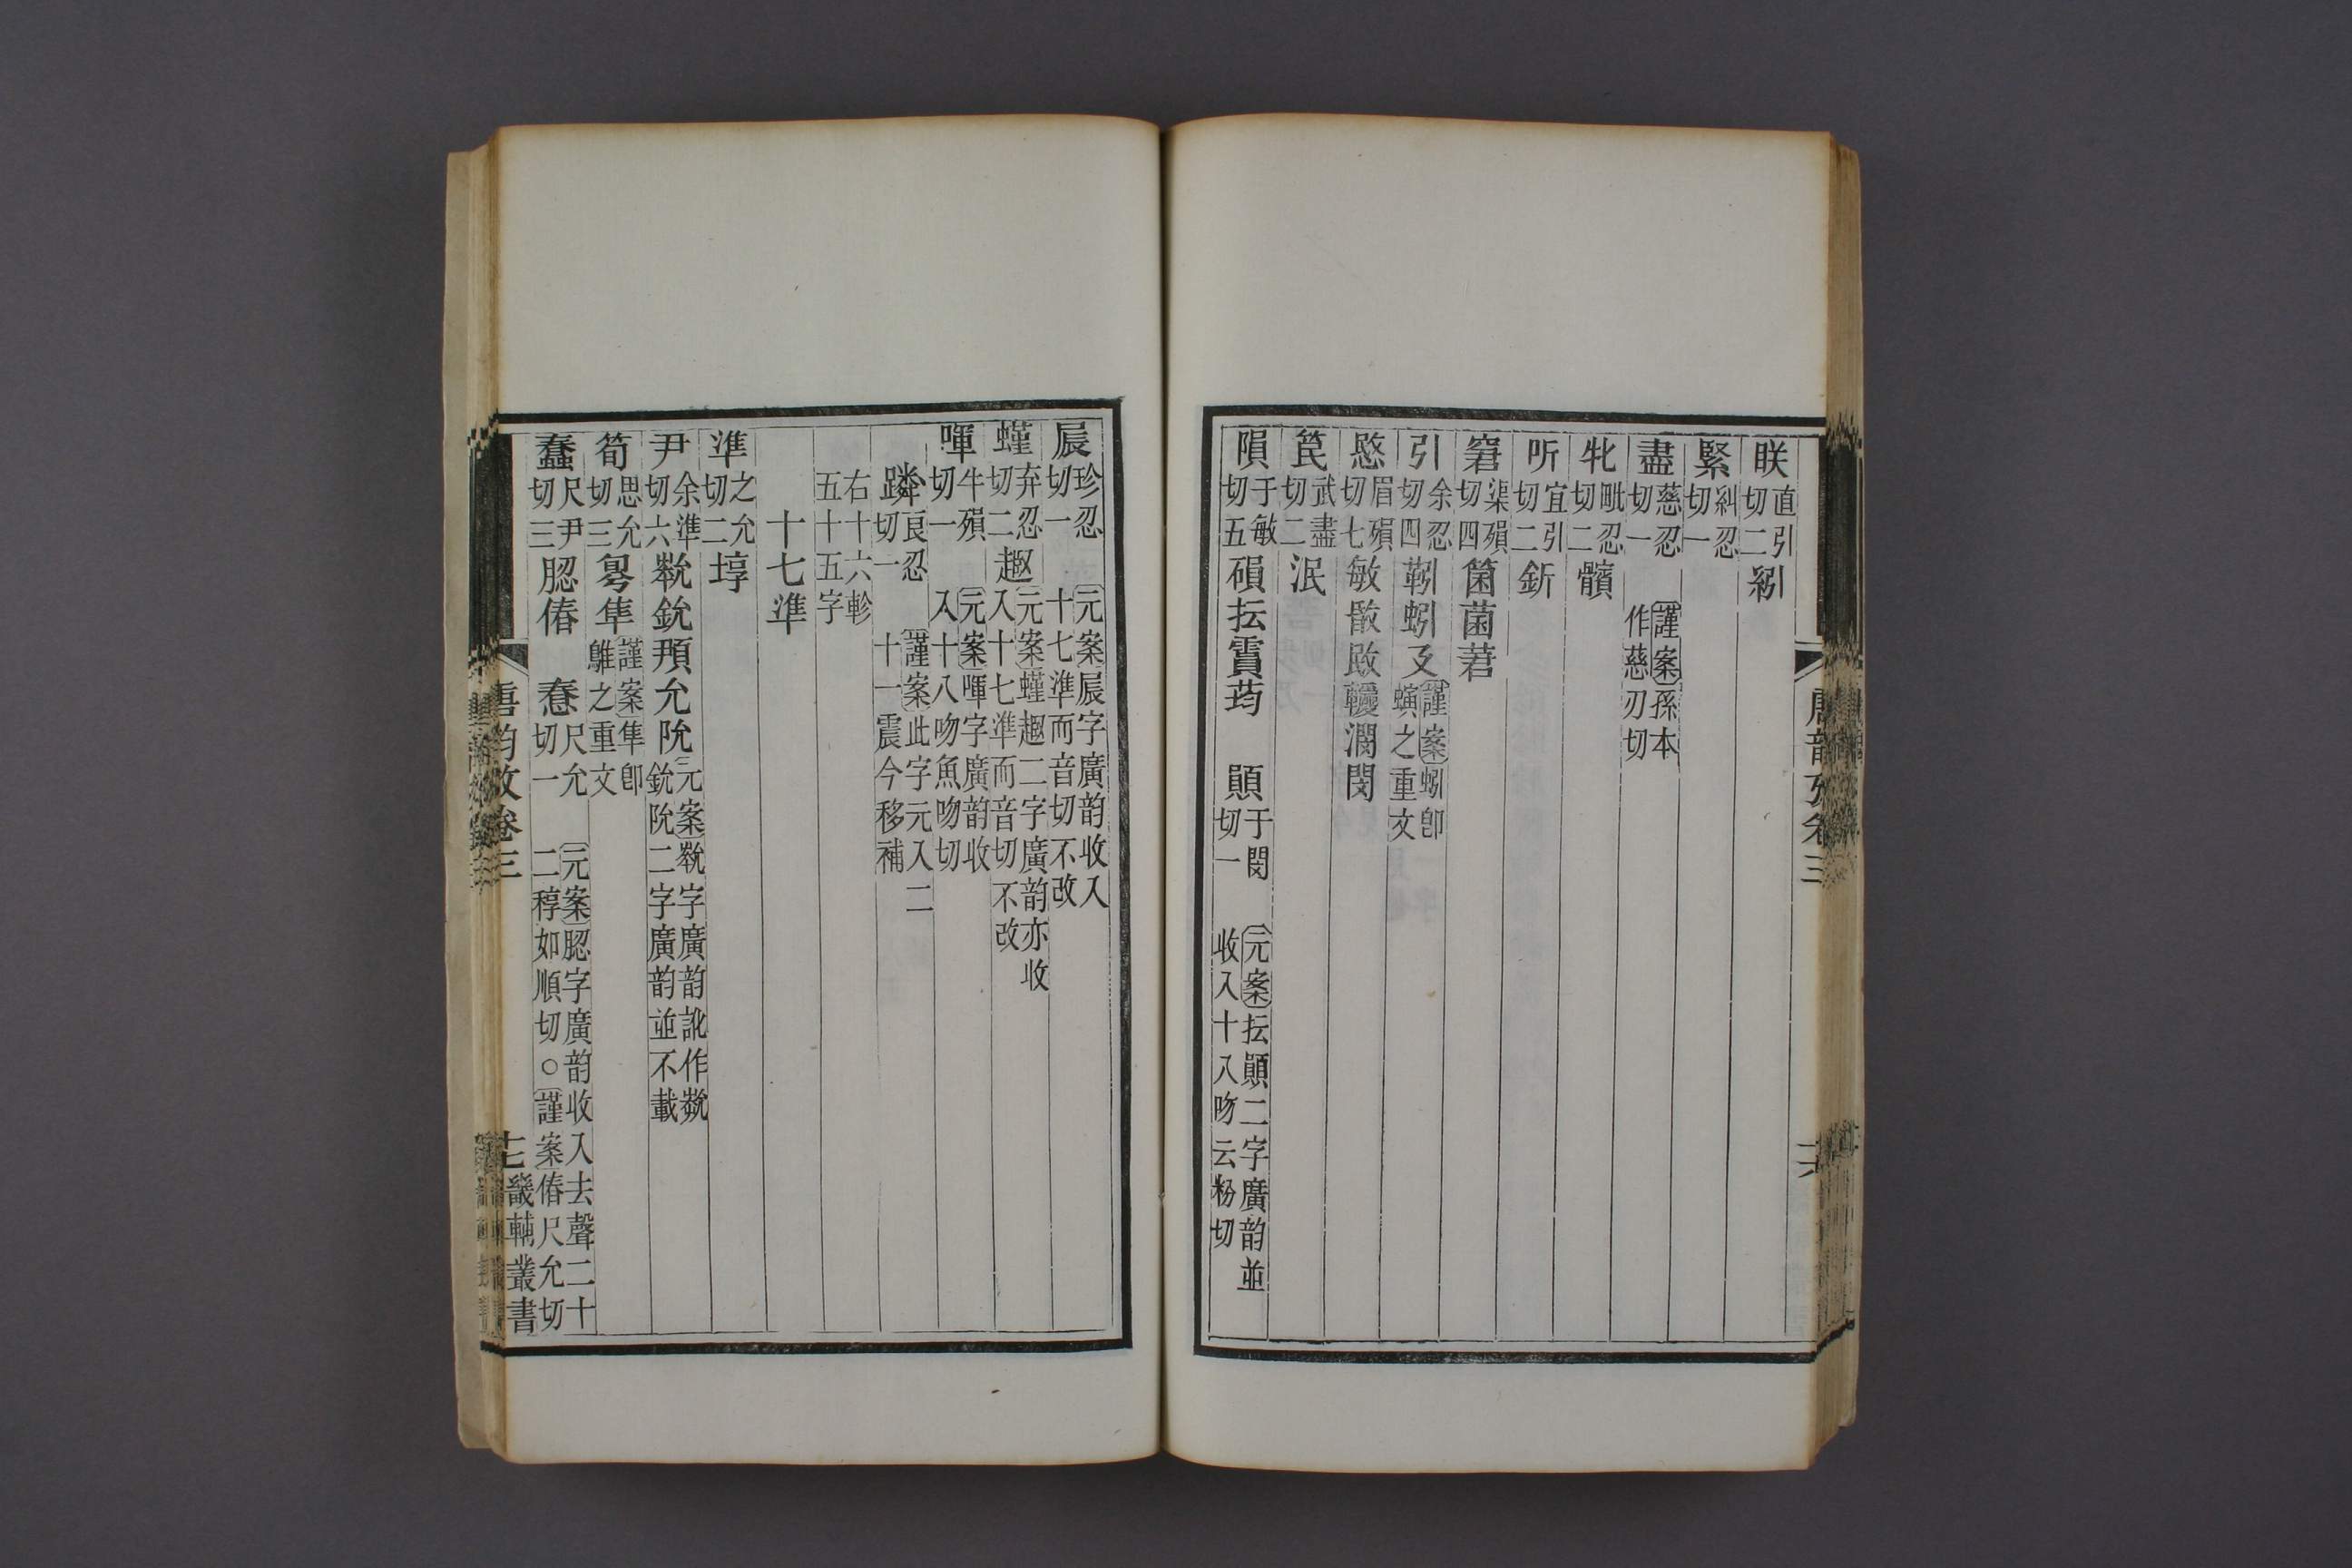 眹直引切二紖
緊糾忍切一
盡慈忍切一謹案孫本作慈刃切
牝毗忍切二髕
听宜引切二釿
窘渠殞切四箘菌莙
引余忍切四靷蚓廴謹案蚓卽螾之重文
愍眉殞切七敏敯敃䡑潣閔
笢武盡切二泯
隕于敏切五磒抎䨶荺 顐于閔切一 元案抎顐二字廣韵並收入十八吻云粉切
唐韵攷卷三
十六
屒珍忍切一 元案屒字廣韵收入十七準而音切不改
螼弃忍切二趣元案螼趣二字廣韵亦收入十七準而音切不改
喗牛殞切一 元案喗字廣韵收入十八吻魚吻切
蹸良忍切一 謹案此字元入二十一震今移補
右十六軫五十五字
十七準
準之允切二埻
尹余準切六㽙鈗䫃允阭元案㽙字廣韵訛作㽙鈗阭二字廣韵並不載
筍思允切三㔼隼謹案隼卽鵻之重文
蠢尺尹切三䐜偆 惷尺允切一 元案䐜字廣韵收入去聲二十二稕如順切○謹案偆尺允切
唐韵攷卷三
十七
畿輔叢書